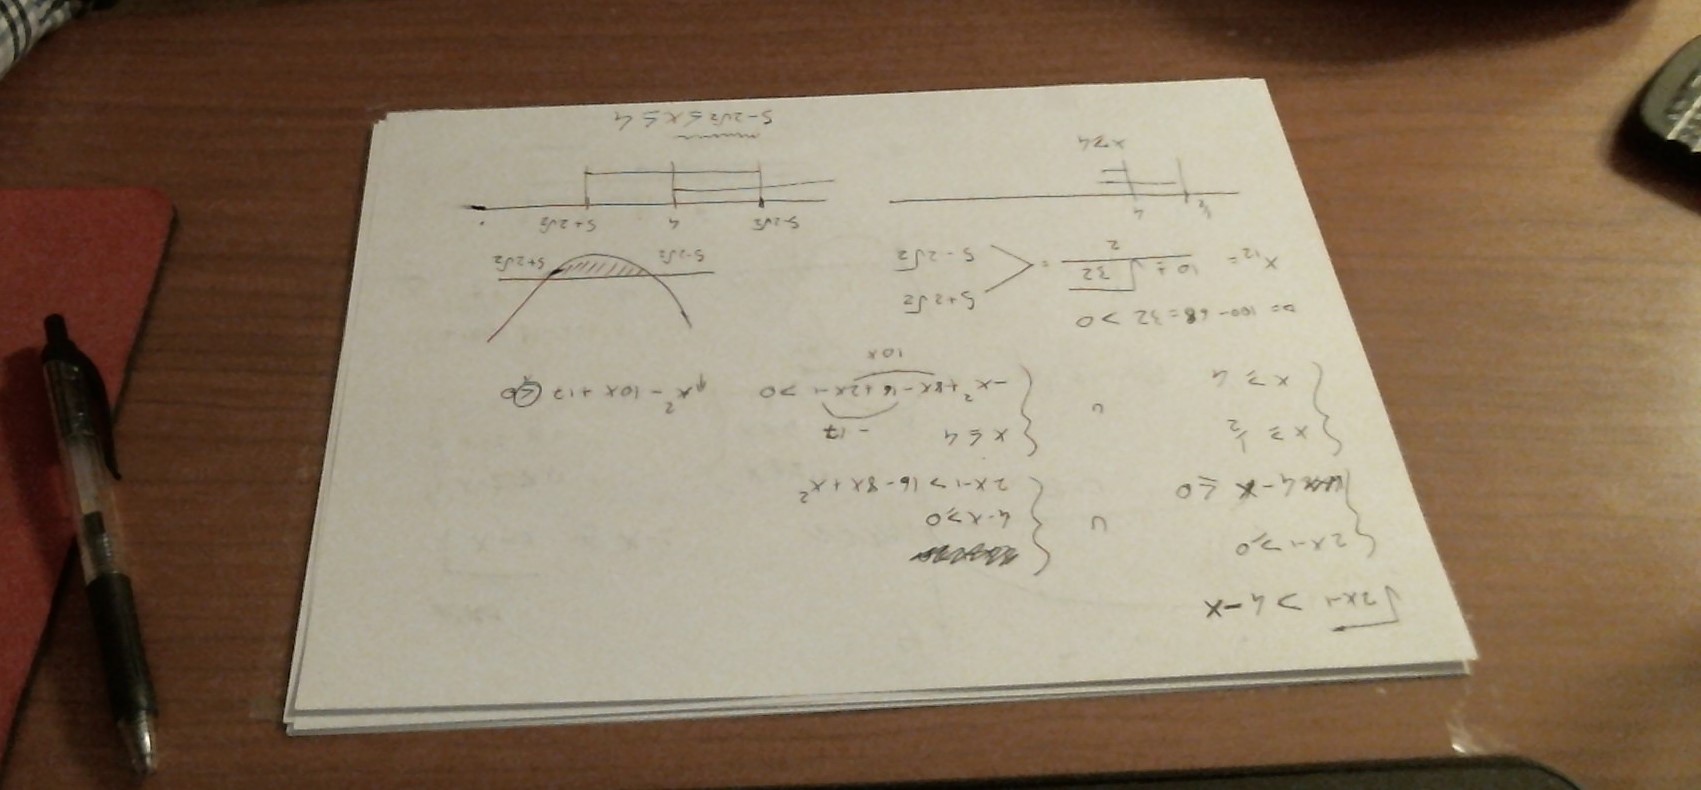 √2x-1 > 4-x
{ 2x-1 ≥0
4-x ≤0
∪
{ 4-x≥0
2x-1 > 16-8x+x²
{ x ≥ 1/2
x ≥ 4
∪
{ x ≤ 4
-x²+8x-16+2x-1 >0
-17
10x
x²-10x+17 <0
Δ= 100-68=32 >0
x12= 10 ± √32 / 2 =
5+2√2
5-2√2
5-2√2 5+2√2
1/2 4
x≥4
5-2√2 4 5+2√2
5-2√2 ≤ x ≤ 4